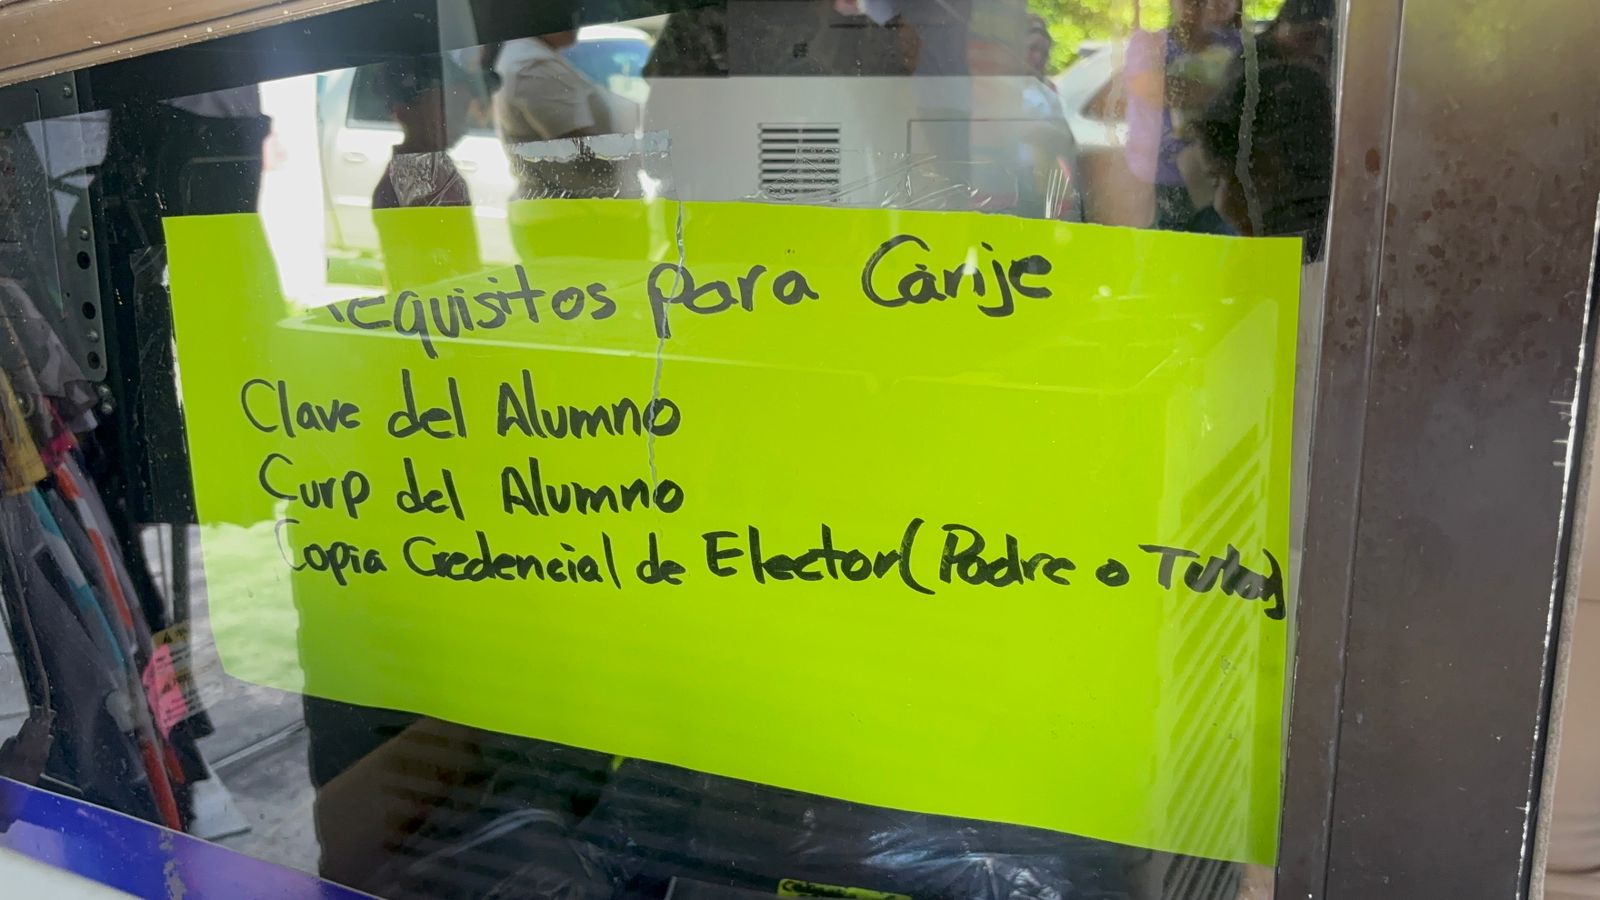 Requisitos para Canje
Clave del Alumno
Curp del Alumno
Copia Credencial de Elector (Padre o Tutor)